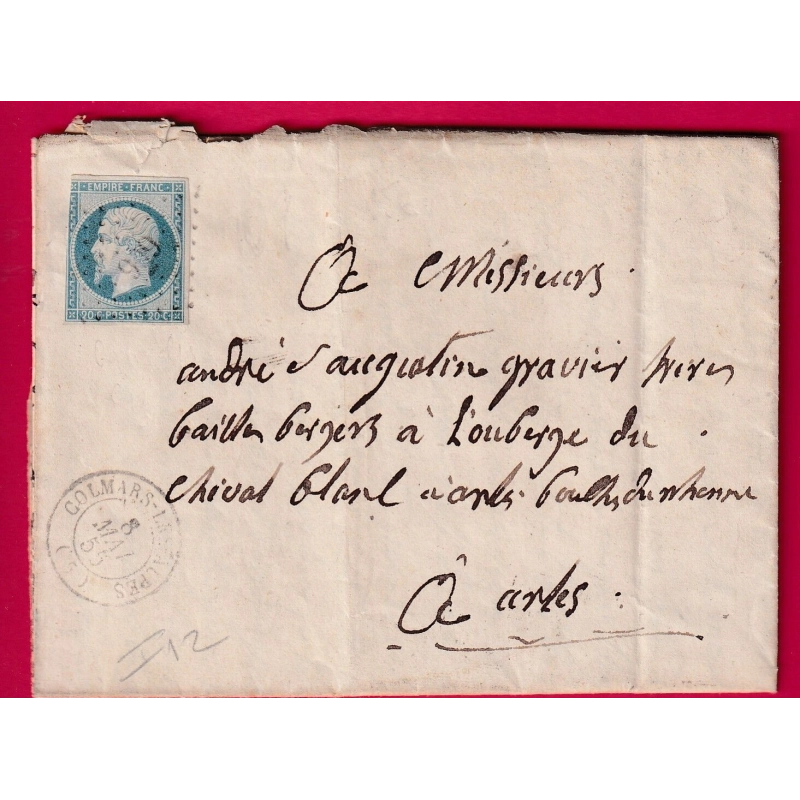 EMPIRE FRANC
20 C POSTES 20 C
A Messieurs
andré d'augustin gravier freres
bailles bergers à l'ouberge du
chival blanc à arles bouches du rhonne
A arles
COLMARS-LES-ALPES (5)
8
MAI
55
I 12